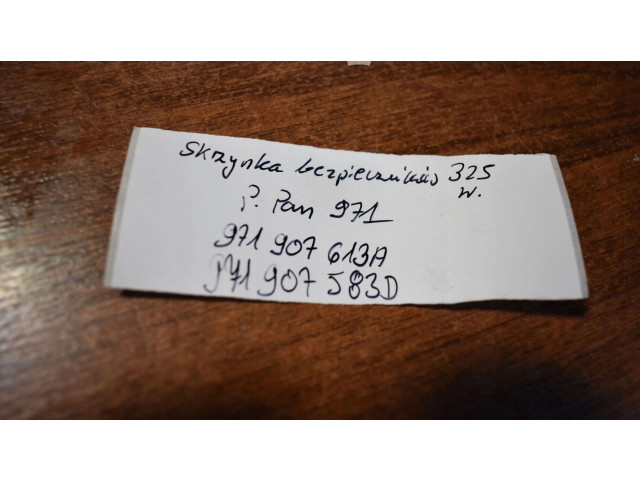 Skrzynka bezpieczników 325 w.
P. Pan 971
971 907 613A
971 907 583D